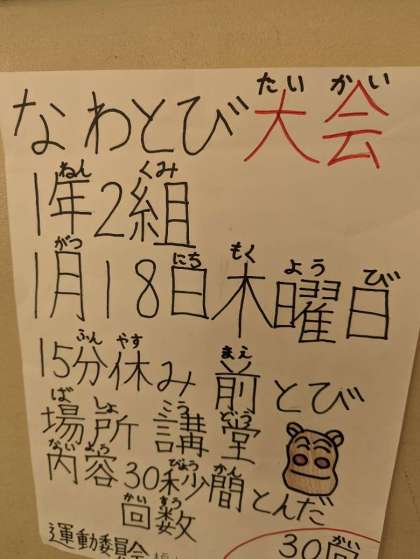 なわとび大会
たいかい
1年2組
ねん くみ
1月18日木曜日
がつ にち もく よう び
15分休み 前とび
ふん やす まえ
場所 講堂
ば しょ こう どう
内容30秒間とんだ
ない よう びょう かん
回数
かい すう
運動委員会
30回
かい